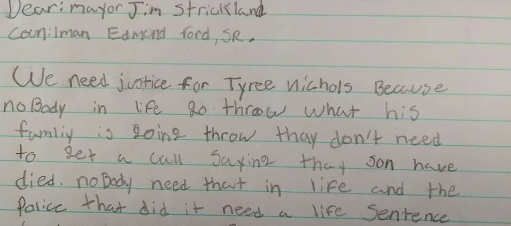 Dear: mayor Jim Strickland
Counilman Edmund Ford, SR.
We need justice for Tyree Nichols Because
noBody in life go throw what his
famliy is going throw thay don't need
to get a call saying thay son have
died. noBody need that in life and the
Police that did it need a life Sentence